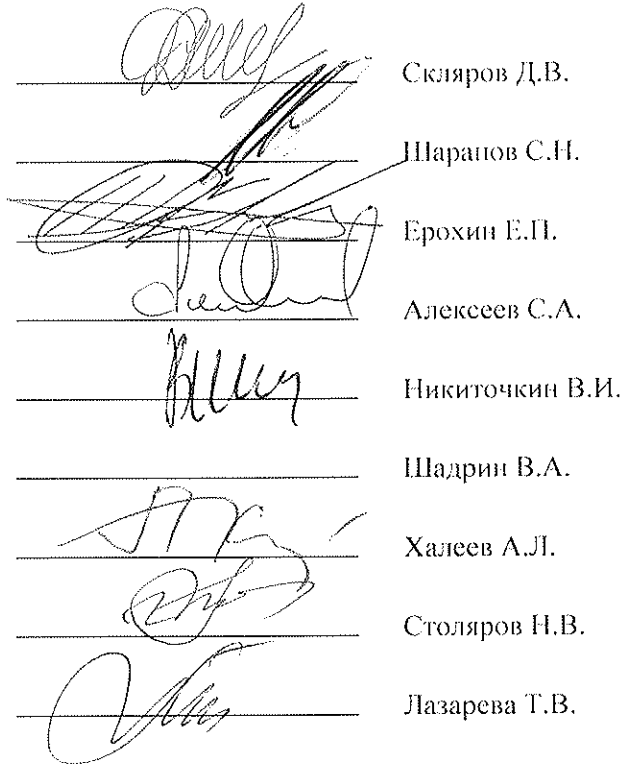 Скляров Д.В.
Шарапов С.Н.
Ерохин Е.П.
Алексеев С.А.
Никиточкин В.И.
Шадрин В.А.
Халеев А.Л.
Столяров Н.В.
Лазарева Т.В.